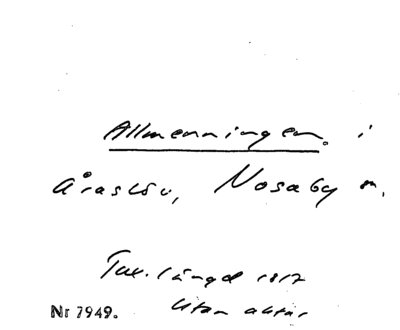 Allmenningen. i
Åraslöv, Nosaby sn.
Tax. längd 1817
Nr 7949. Utan aktnr